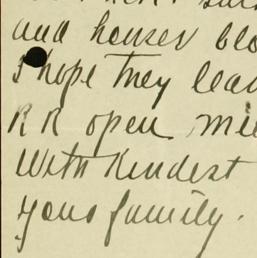 and houses blo
I hope they leav
R R open mil
With Kindest
your family.